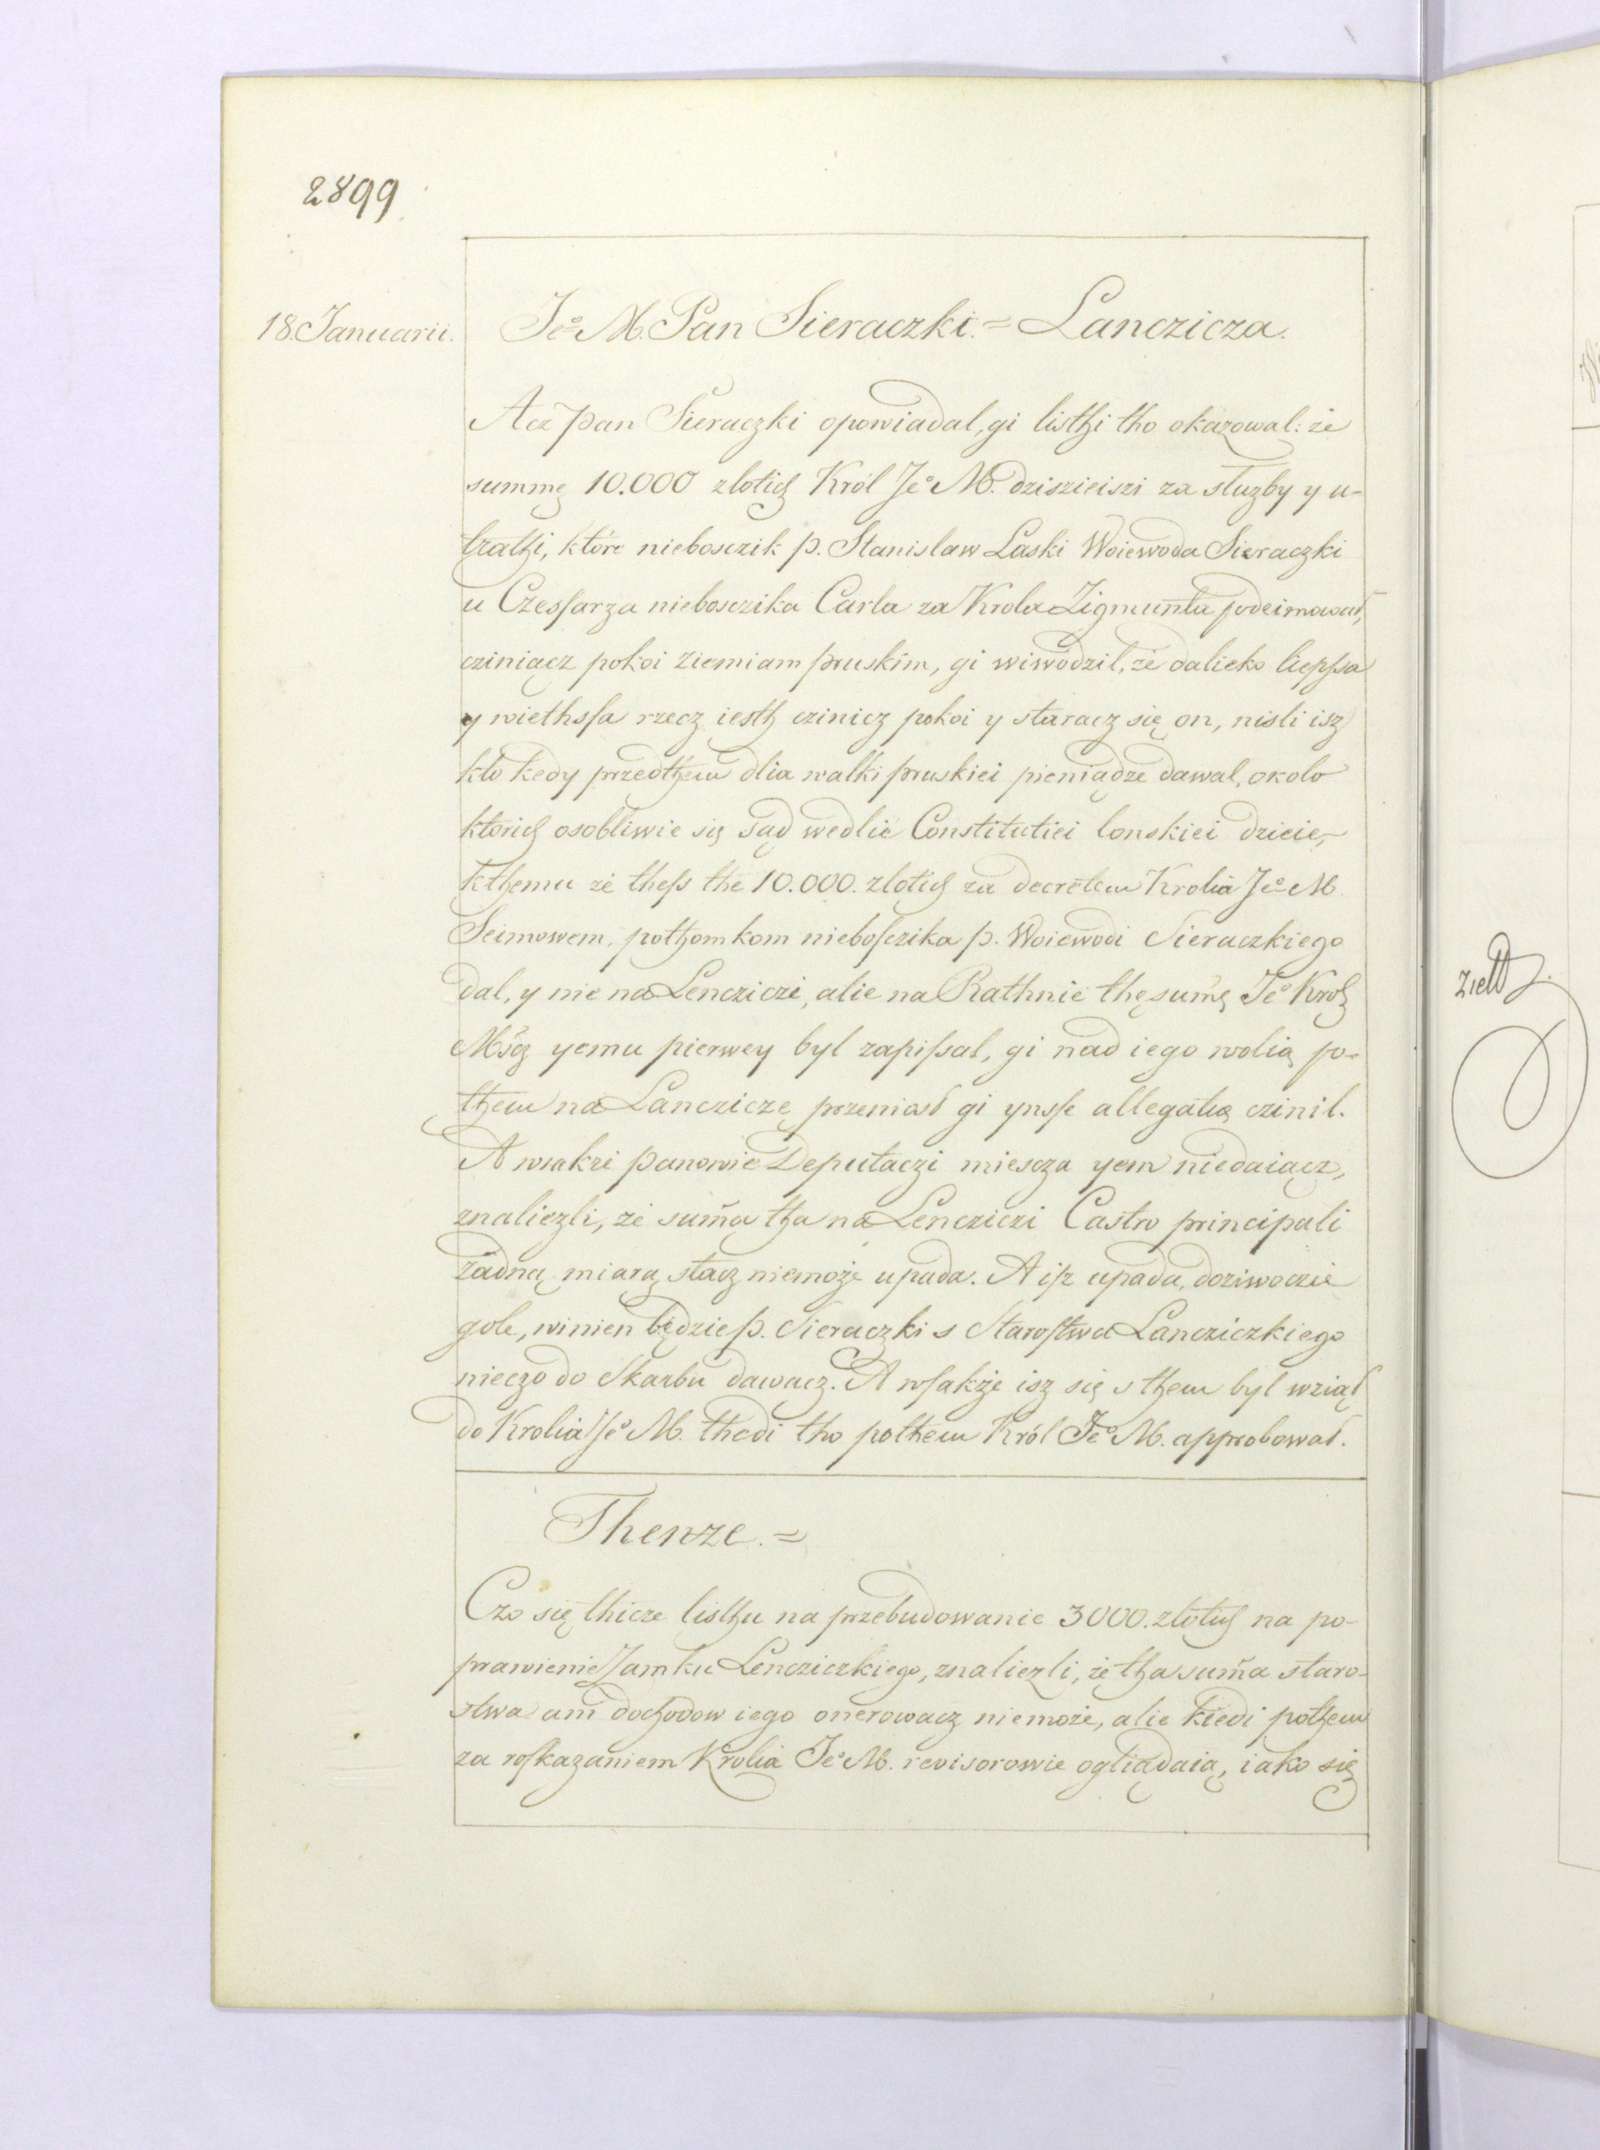 2899
18. Januarii.
Jeº M. Pan Sieraczki. = Lanczicza.
Acz pan Sieraczki opowiadal, gi listhi tho okazowal: że
summę 10.000 zlotich Król Jeº M. dziszieiszi za służby y u-
trathi, które nieboszczik p. Stanislaw Laski Woiewoda Sieraczki
u Czesſarza nieboszczika Carla za Krola Zigmunta podeimował,
cziniącz pokoi ziemiam pruskim, gi wiwodzil, że dalieko liepſsa
y wiethsſa rzecz iesth czinicz pokoi y staracz się on, nisli isz
kto kedy przedthem dlia walki pruskiei pieniądze dawal, okolo
ktorich osobliwie się sąd wedlie Constitutiei lonskiei dzieie,
kthemu że theſs the 10.000. zlotich za decretem Krolia Jeº M.
Seimowem, pothomkom nieboſczika p. Woiewodi Sieraczkiego
dal, y nie na Lencziczi, alie na Rathnie thę sum̃ę Jeº Krol
Mścz yemu pierwey byl zapiſsal, gi nad iego wolią po-
them na Lancziczę przeniosł gi ynsſe allegatią czinil.
A wsakzi panowie Deputaczi miescza yem niedaiącz,
znaliezli, że sum̃a tha na Lencziczi Castro principali
żadną miarą stacz niemoże upada. A iſz upada, doziwoczie
gole, winien będzie p. Sieraczki s Staroſtwa Lancziczkiego
nieczo do Skarbu dawacz. A wſakże isz się s them byl wziął
do Krolia Jeº M. thedi tho pothem Król Jeº M. approbował.
Thenze. =
Czo się thicze listhu na przebudowanie 3000. złotich na po-
prawienie Zamku Lencziczkiego, znaliezli, że tha sum̃a staro-
stwa ani dochodow iego onerowacz niemoże, alie kiedi pothem
za roſkazaniem Krolia Jeº M. revisorowie oglią̨daią, iako się